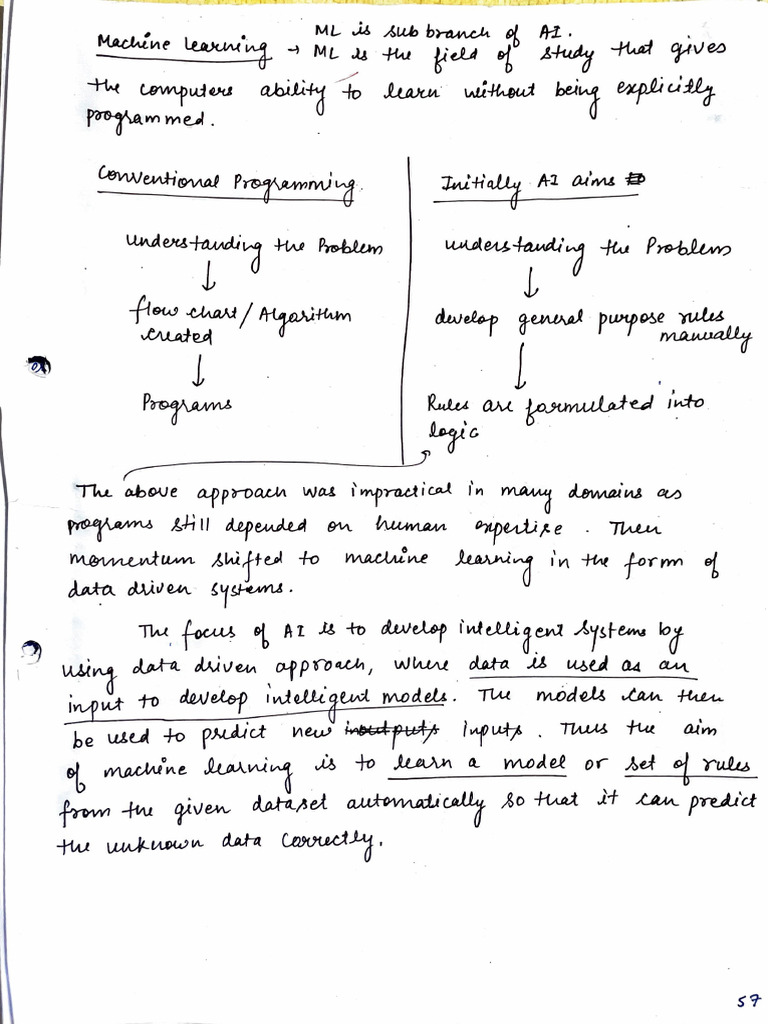 ML is sub branch of AI.
Machine Learning → ML is the field of study that gives
the computers ability to learn without being explicitly
programmed.
Conventional Programming.
understanding the Problem
↓
flow chart / Algorithm
created
↓
Programs
Initially AI aims
understanding the Problem
↓
develop general purpose rules
manually
↓
Rules are formulated into
logic
The above approach was impractical in many domains as
programs still depended on human expertise. Then
momentum shifted to machine learning in the form of
data driven systems.
The focus of AI is to develop intelligent systems by
using data driven approach, where data is used as an
input to develop intelligent models. The models can then
be used to predict new inputs. Thus the aim
of machine learning is to learn a model or set of rules
from the given dataset automatically so that it can predict
the unknown data correctly.
57